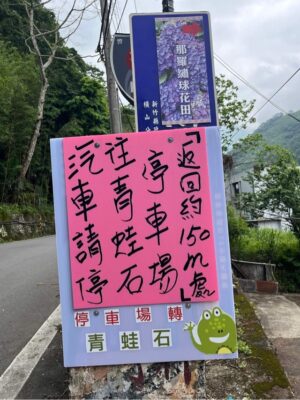 那羅繡球花田
新竹縣
橫山
汽車請停
往青蛙石
停車場
「返回約150m處」
停車場轉
青蛙石